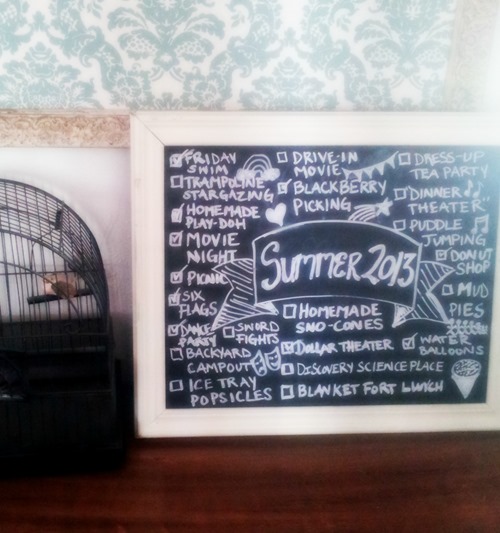 FRIDAY
SWIM
TRAMPOLINE
STARGAZING
HOMEMADE
PLAY-DOH
MOVIE
NIGHT
PICNIC
SIX
FLAGS
DANCE
PARTY
SWORD
FIGHTS
BACKYARD
CAMPOUT
ICE TRAY
POPSICLES
DRIVE-IN
MOVIE
BLACKBERRY
PICKING
SUMMER 2013
HOMEMADE
SNO-CONES
DOLLAR THEATER
DISCOVERY SCIENCE PLACE
BLANKET FORT LUNCH
DRESS-UP
TEA PARTY
"DINNER
THEATER"
PUDDLE
JUMPING
DONUT
SHOP
MUD
PIES
WATER
BALLOONS